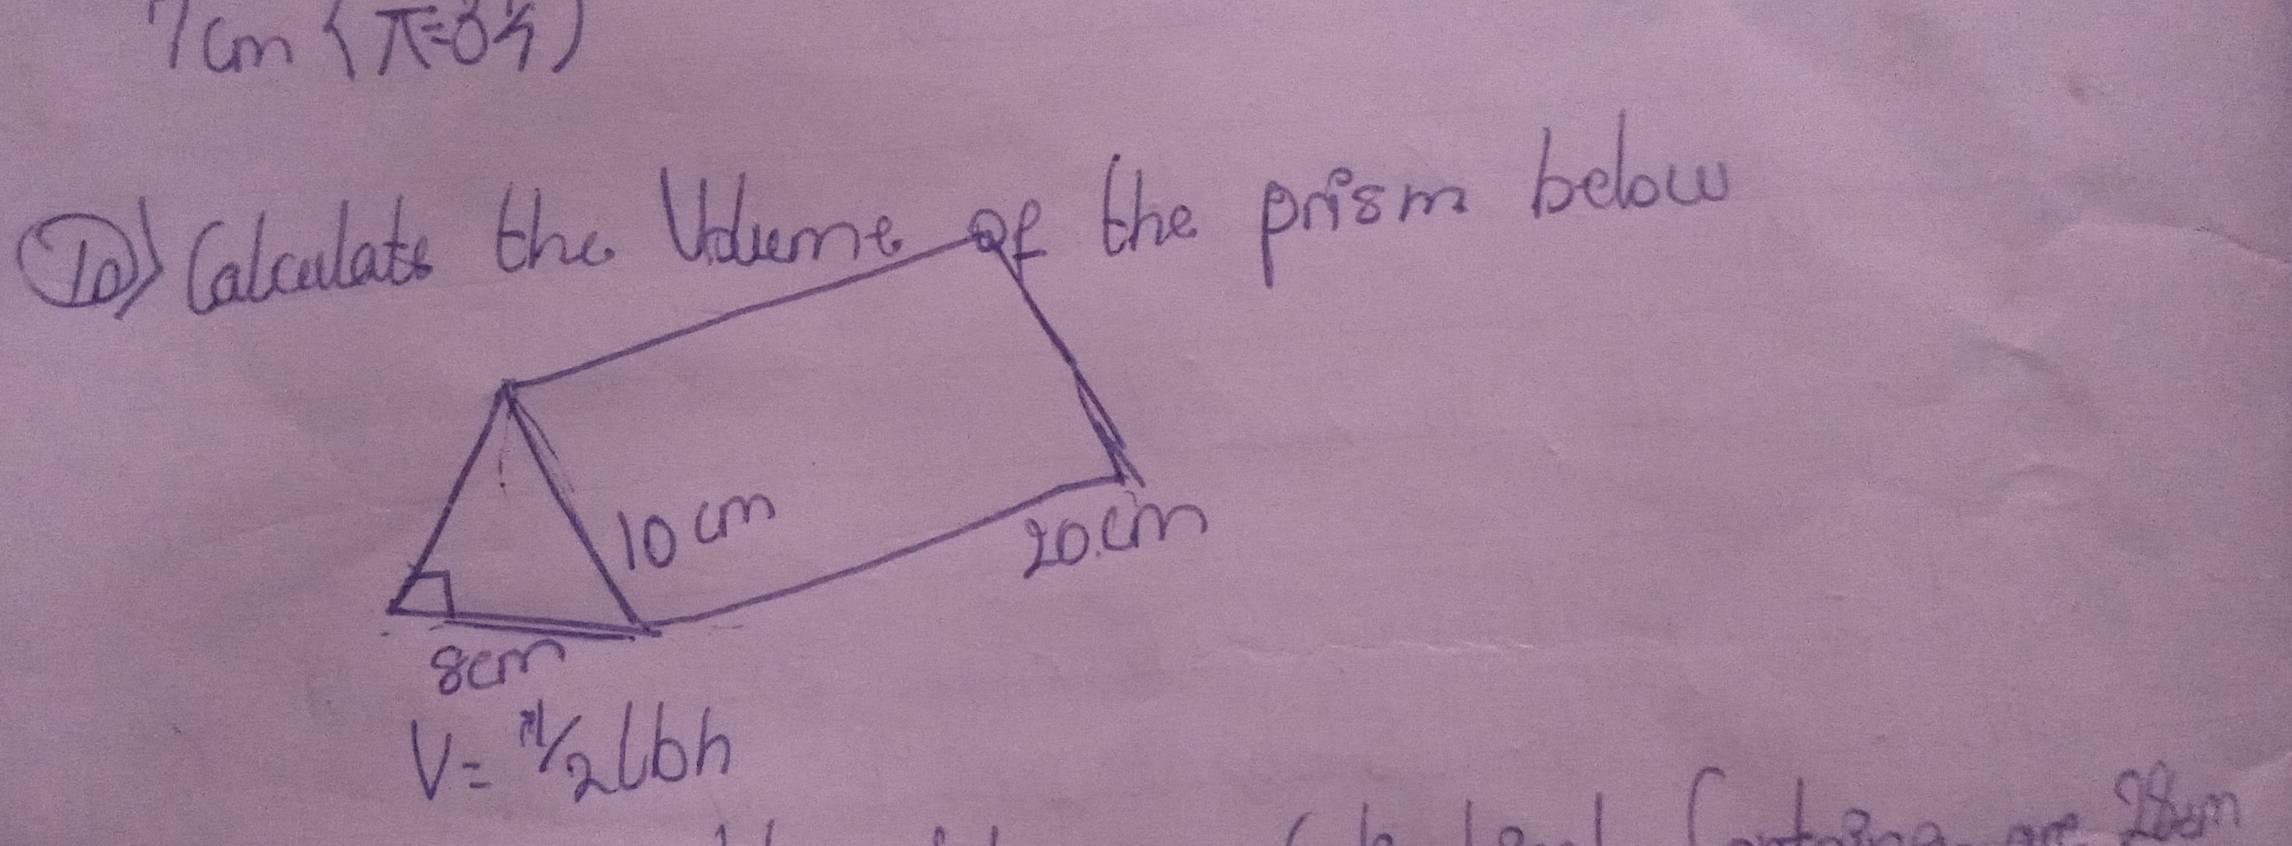 7cm (π=3¼)
10) Calculate the Volume of the prism below
10 cm
20.cm
8cm
V= 1/2 lbh
28cm